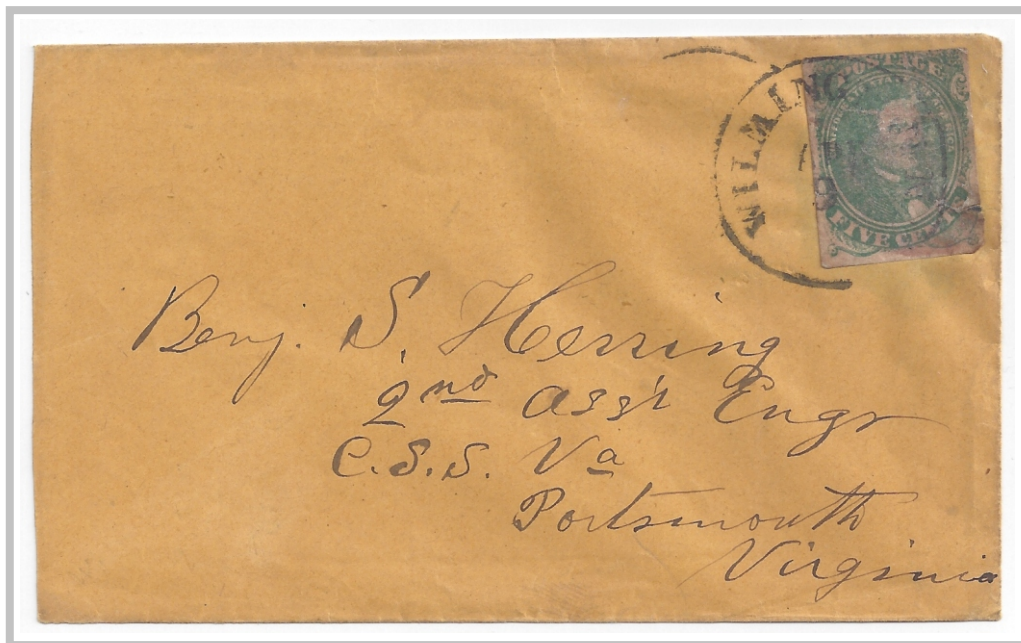 WILMING
POSTAGE
FIVE CENTS
Benj. S. Herring
2nd Ass't Engr
C.S.S. Va
Portsmouth
Virginia